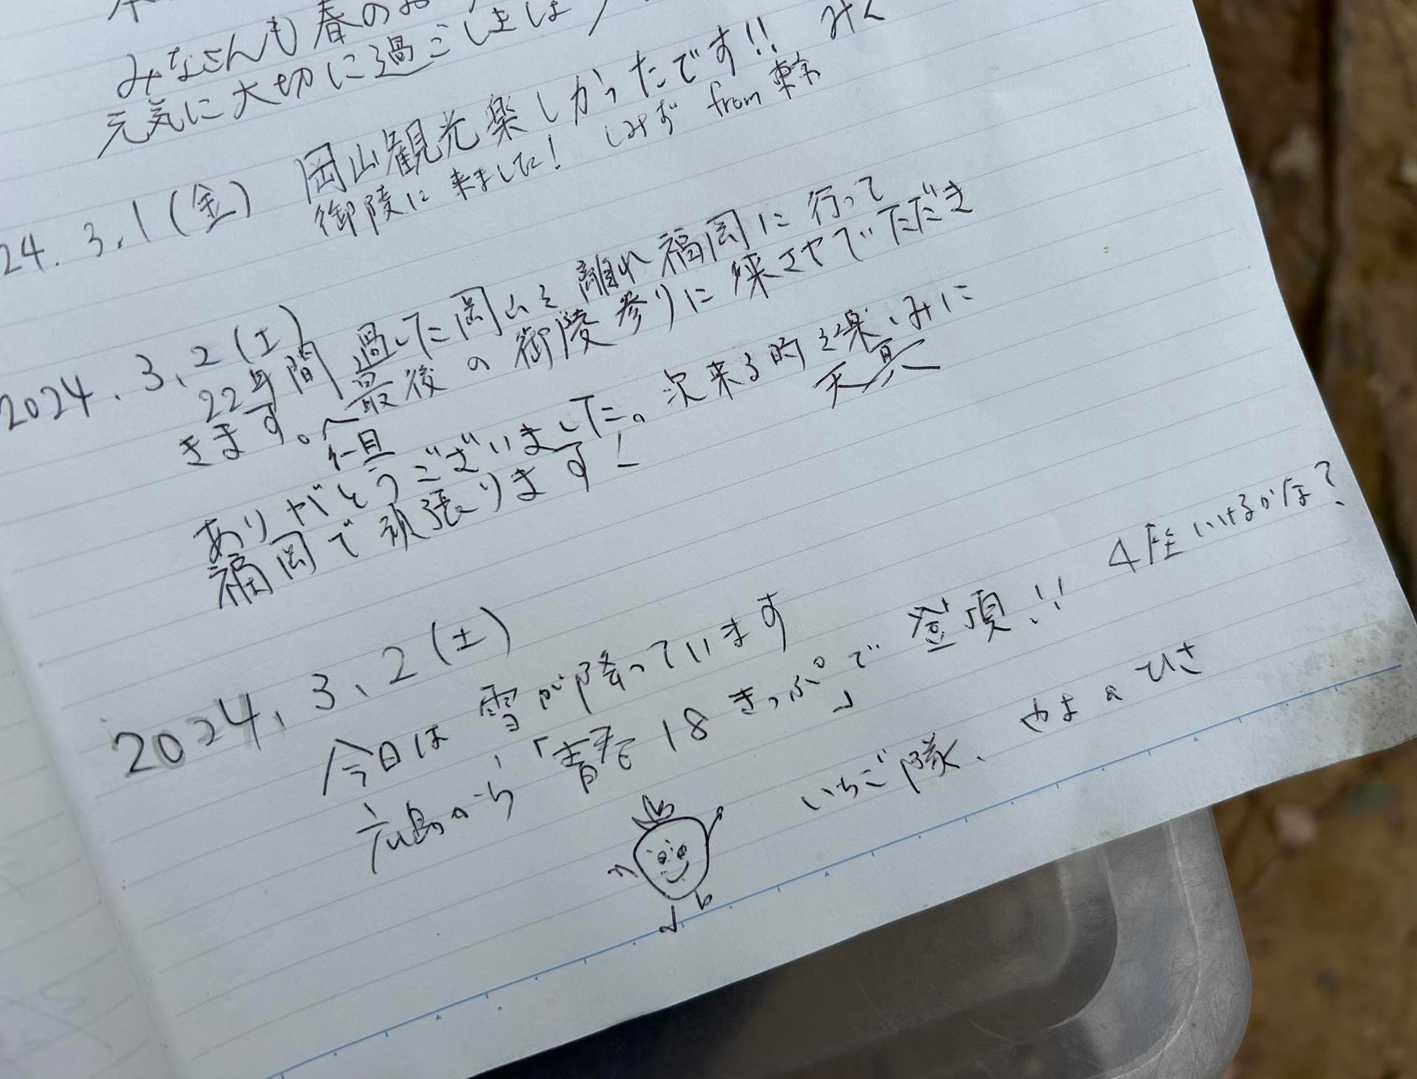 みなさんも春のお
元気に大切に過ごしましょ
24.3.1(金) 岡山観光楽しかったです!! みく
御陵に来ました! しみず from 東京
2024.3.2(土)
22年間過した岡山を離れ福岡に行って
きます。最後の御陵参りに来させでただき
ありがとうございました。次来る時を楽しみに
福岡で頑張ります!
2024.3.2(土)
今日は雪が降っています
広島から「青春18きっぷ」で登頂!! 4座いけるかな?
いちご隊、やまのひさ